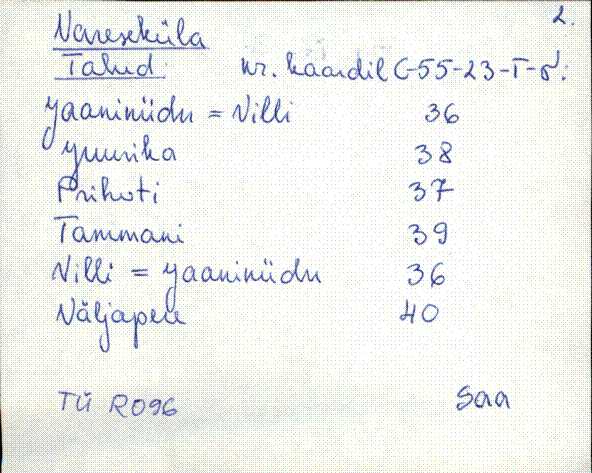 2.
Vareseküla
Talud nr. kaardil C-55-23-T-б:
Jaaniniidu = Villi 36
Juurika 38
Prihoti 37
Tammani 39
Villi = Jaaniniidu 36
Väljapere 40
TÜ R096 Saa